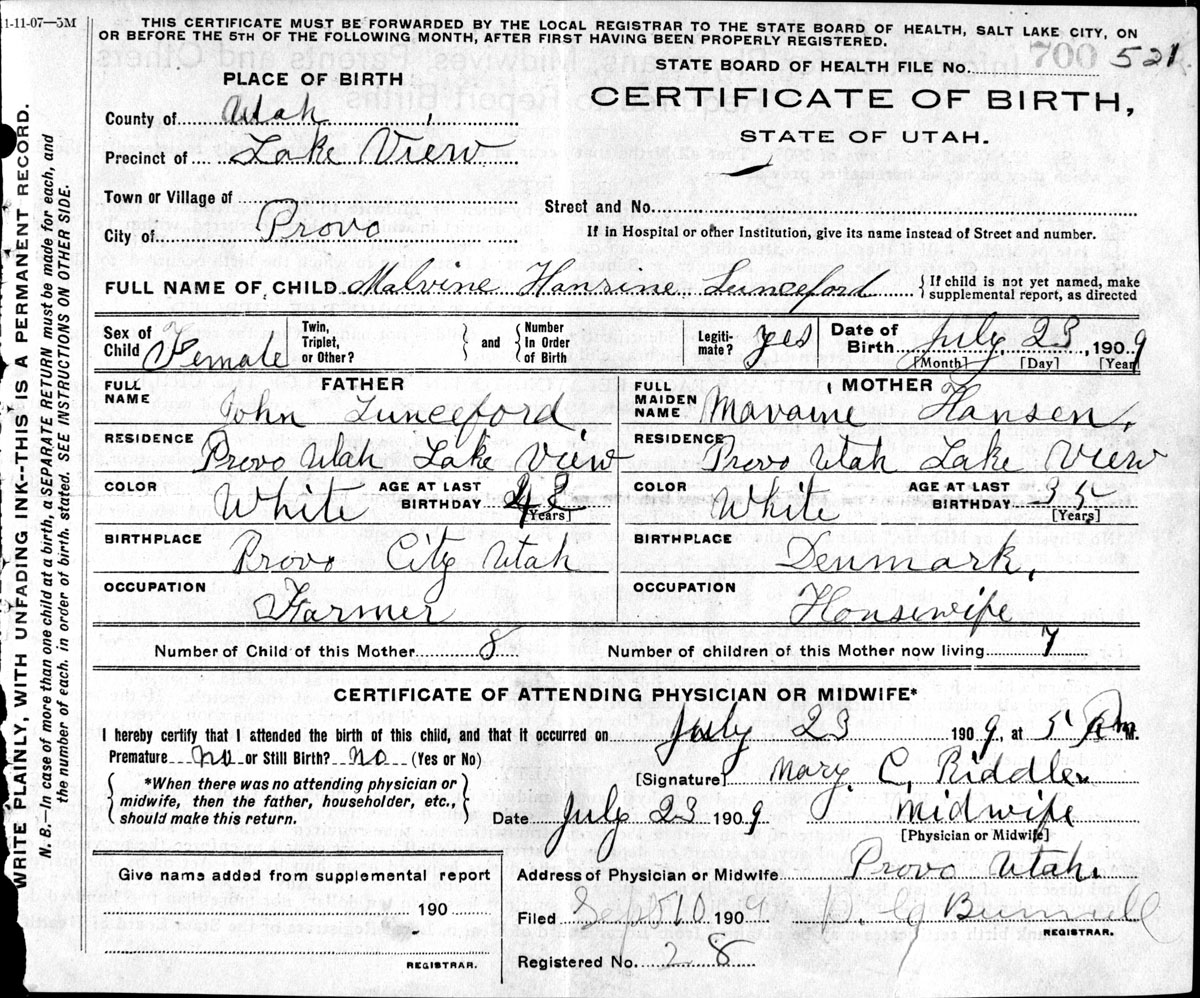 1-11-07—5M
THIS CERTIFICATE MUST BE FORWARDED BY THE LOCAL REGISTRAR TO THE STATE BOARD OF HEALTH, SALT LAKE CITY, ON
OR BEFORE THE 5TH OF THE FOLLOWING MONTH, AFTER FIRST HAVING BEEN PROPERLY REGISTERED.
WRITE PLAINLY, WITH UNFADING INK--THIS IS A PERMANENT RECORD.
N. B.—In case of more than one child at a birth, a SEPARATE RETURN must be made for each, and
the number of each. in order of birth. stated. SEE INSTRUCTIONS ON OTHER SIDE.
STATE BOARD OF HEALTH FILE No. 700 521
CERTIFICATE OF BIRTH,
STATE OF UTAH.
PLACE OF BIRTH
County of Utah
Precinct of Lake View
Town or Village of
City of Provo
Street and No.
If in Hospital or other Institution, give its name instead of Street and number.
FULL NAME OF CHILD Malvine Hansine Lunceford
If child is not yet named, make
supplemental report, as directed
Sex of Child Female
Twin, Triplet, or Other?
and
Number In Order of Birth
Legiti-mate? yes
Date of Birth July 23, 1909
[Month] [Day] [Year]
FATHER
FULL NAME John Lunceford,
RESIDENCE Provo Utah Lake View
COLOR White
AGE AT LAST BIRTHDAY
[Years]
BIRTHPLACE Provo City Utah
OCCUPATION Farmer
MOTHER
FULL MAIDEN NAME Hansen,
RESIDENCE Provo Utah Lake View
COLOR White
AGE AT LAST BIRTHDAY 35
[Years]
BIRTHPLACE Denmark,
OCCUPATION Housewife
Number of Child of this Mother 8
Number of children of this Mother now living 7
CERTIFICATE OF ATTENDING PHYSICIAN OR MIDWIFE*
I hereby certify that I attended the birth of this child, and that it occurred on July 23 1909, at 5 A M.
Premature no or Still Birth? no (Yes or No)
*When there was no attending physician or
midwife, then the father, householder, etc.,
should make this return.
[Signature] Mary C. Riddle
Date July 23 1909 Midwife
[Physician or Midwife]
Address of Physician or Midwife Provo Utah
Give name added from supplemental report
190
REGISTRAR.
Filed Sept 10 1909
REGISTRAR.
Registered No. 28